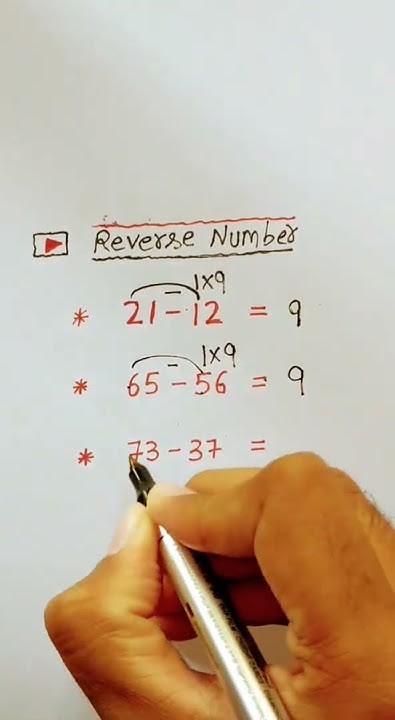 Reverse Number
1×9
* 21 - 12 = 9
1×9
* 65 - 56 = 9
* 73 - 37 =